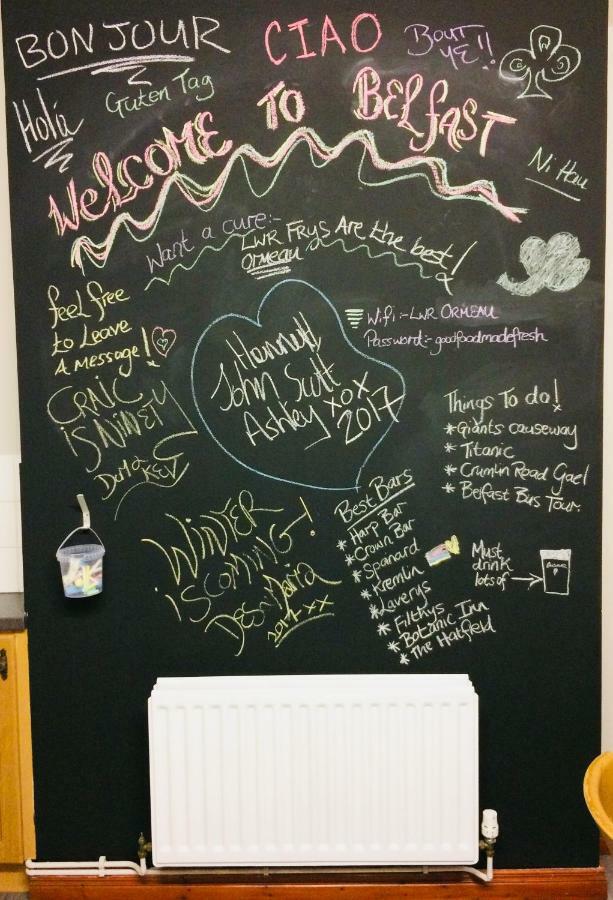 BONJOUR
CIAO
Bout
YE!!
Hola
Guten Tag
Welcome TO BELfAST
Ni Hau
Want a cure:-
LWR FRYS Are the best!
Ormeau
feel free
to Leave
A message!
Wifi:-LWR ORMEAU
Password:-goodfoodmadefresh
Hannah
John Scott
Ashley xox
2017
CRAIC
iS NINETY
Things To do!
*Giants causeway
*Titanic
*Crumlin Road Gael
*Belfast Bus Tour.
WiNTER
iS COMING!
Des Maria
2017 xx
Best Bars
*Harp Bar
*Crown Bar
*Spanard
*Kremlin
*Laverys
*Filthys
*Botanic Inn
*The Hatfield
Must
drink
lots of